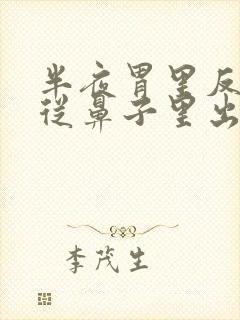 半夜胃里反
从鼻子里出
李茂生